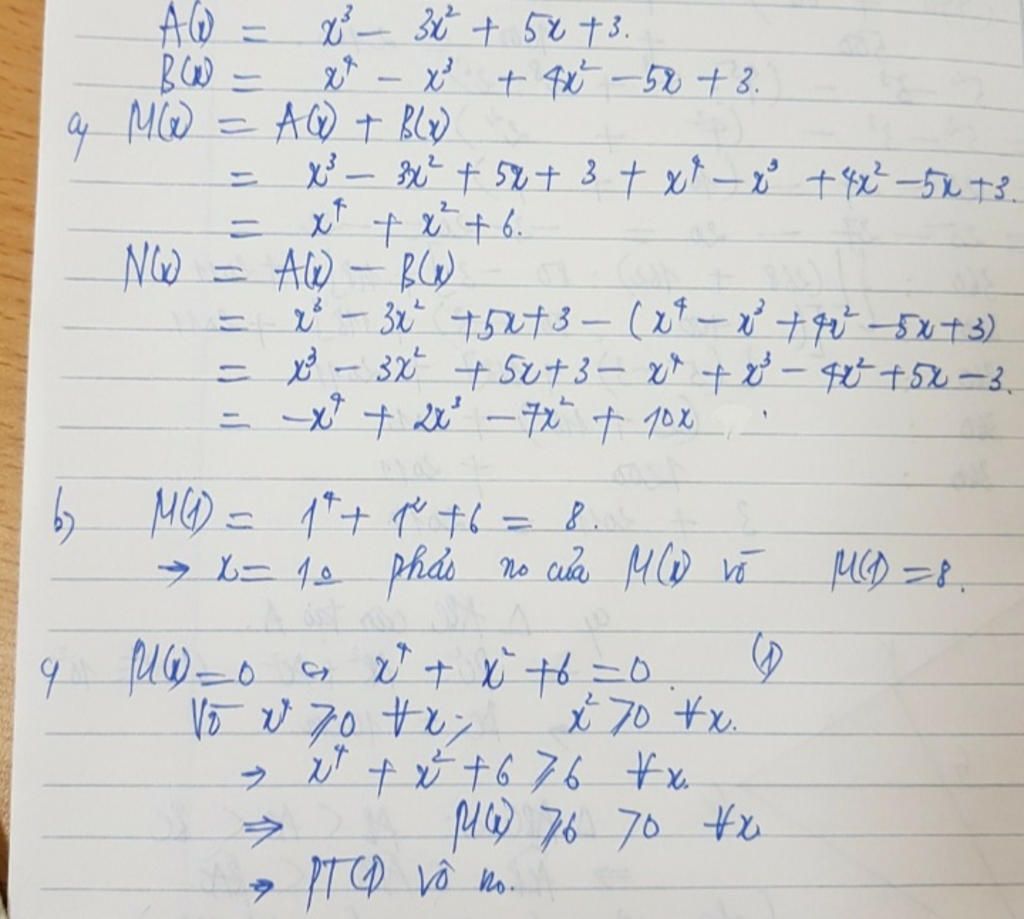 A(x) = x³ - 3x² + 5x + 3.
B(x) = x⁴ - x³ + 4x² - 5x + 3.
a) M(x) = A(x) + B(x)
= x³ - 3x² + 5x + 3 + x⁴ - x³ + 4x² - 5x + 3.
= x⁴ + x² + 6.
N(x) = A(x) - B(x)
= x³ - 3x² + 5x + 3 - (x⁴ - x³ + 4x² - 5x + 3)
= x³ - 3x² + 5x + 3 - x⁴ + x³ - 4x² + 5x - 3.
= -x⁴ + 2x³ - 7x² + 10x
b) M(1) = 1⁴ + 1² + 6 = 8.
→ x = 1 phải no của M(x) vì M(1) = 8.
c) M(x) = 0 ⇔ x⁴ + x² + 6 = 0. (1)
Vì x⁴ ⩾ 0 ∀x; x² ⩾ 0 ∀x.
→ x⁴ + x² + 6 ⩾ 6 ∀x.
⇒ M(x) ⩾ 6 > 0 ∀x
→ PT(1) vô no.